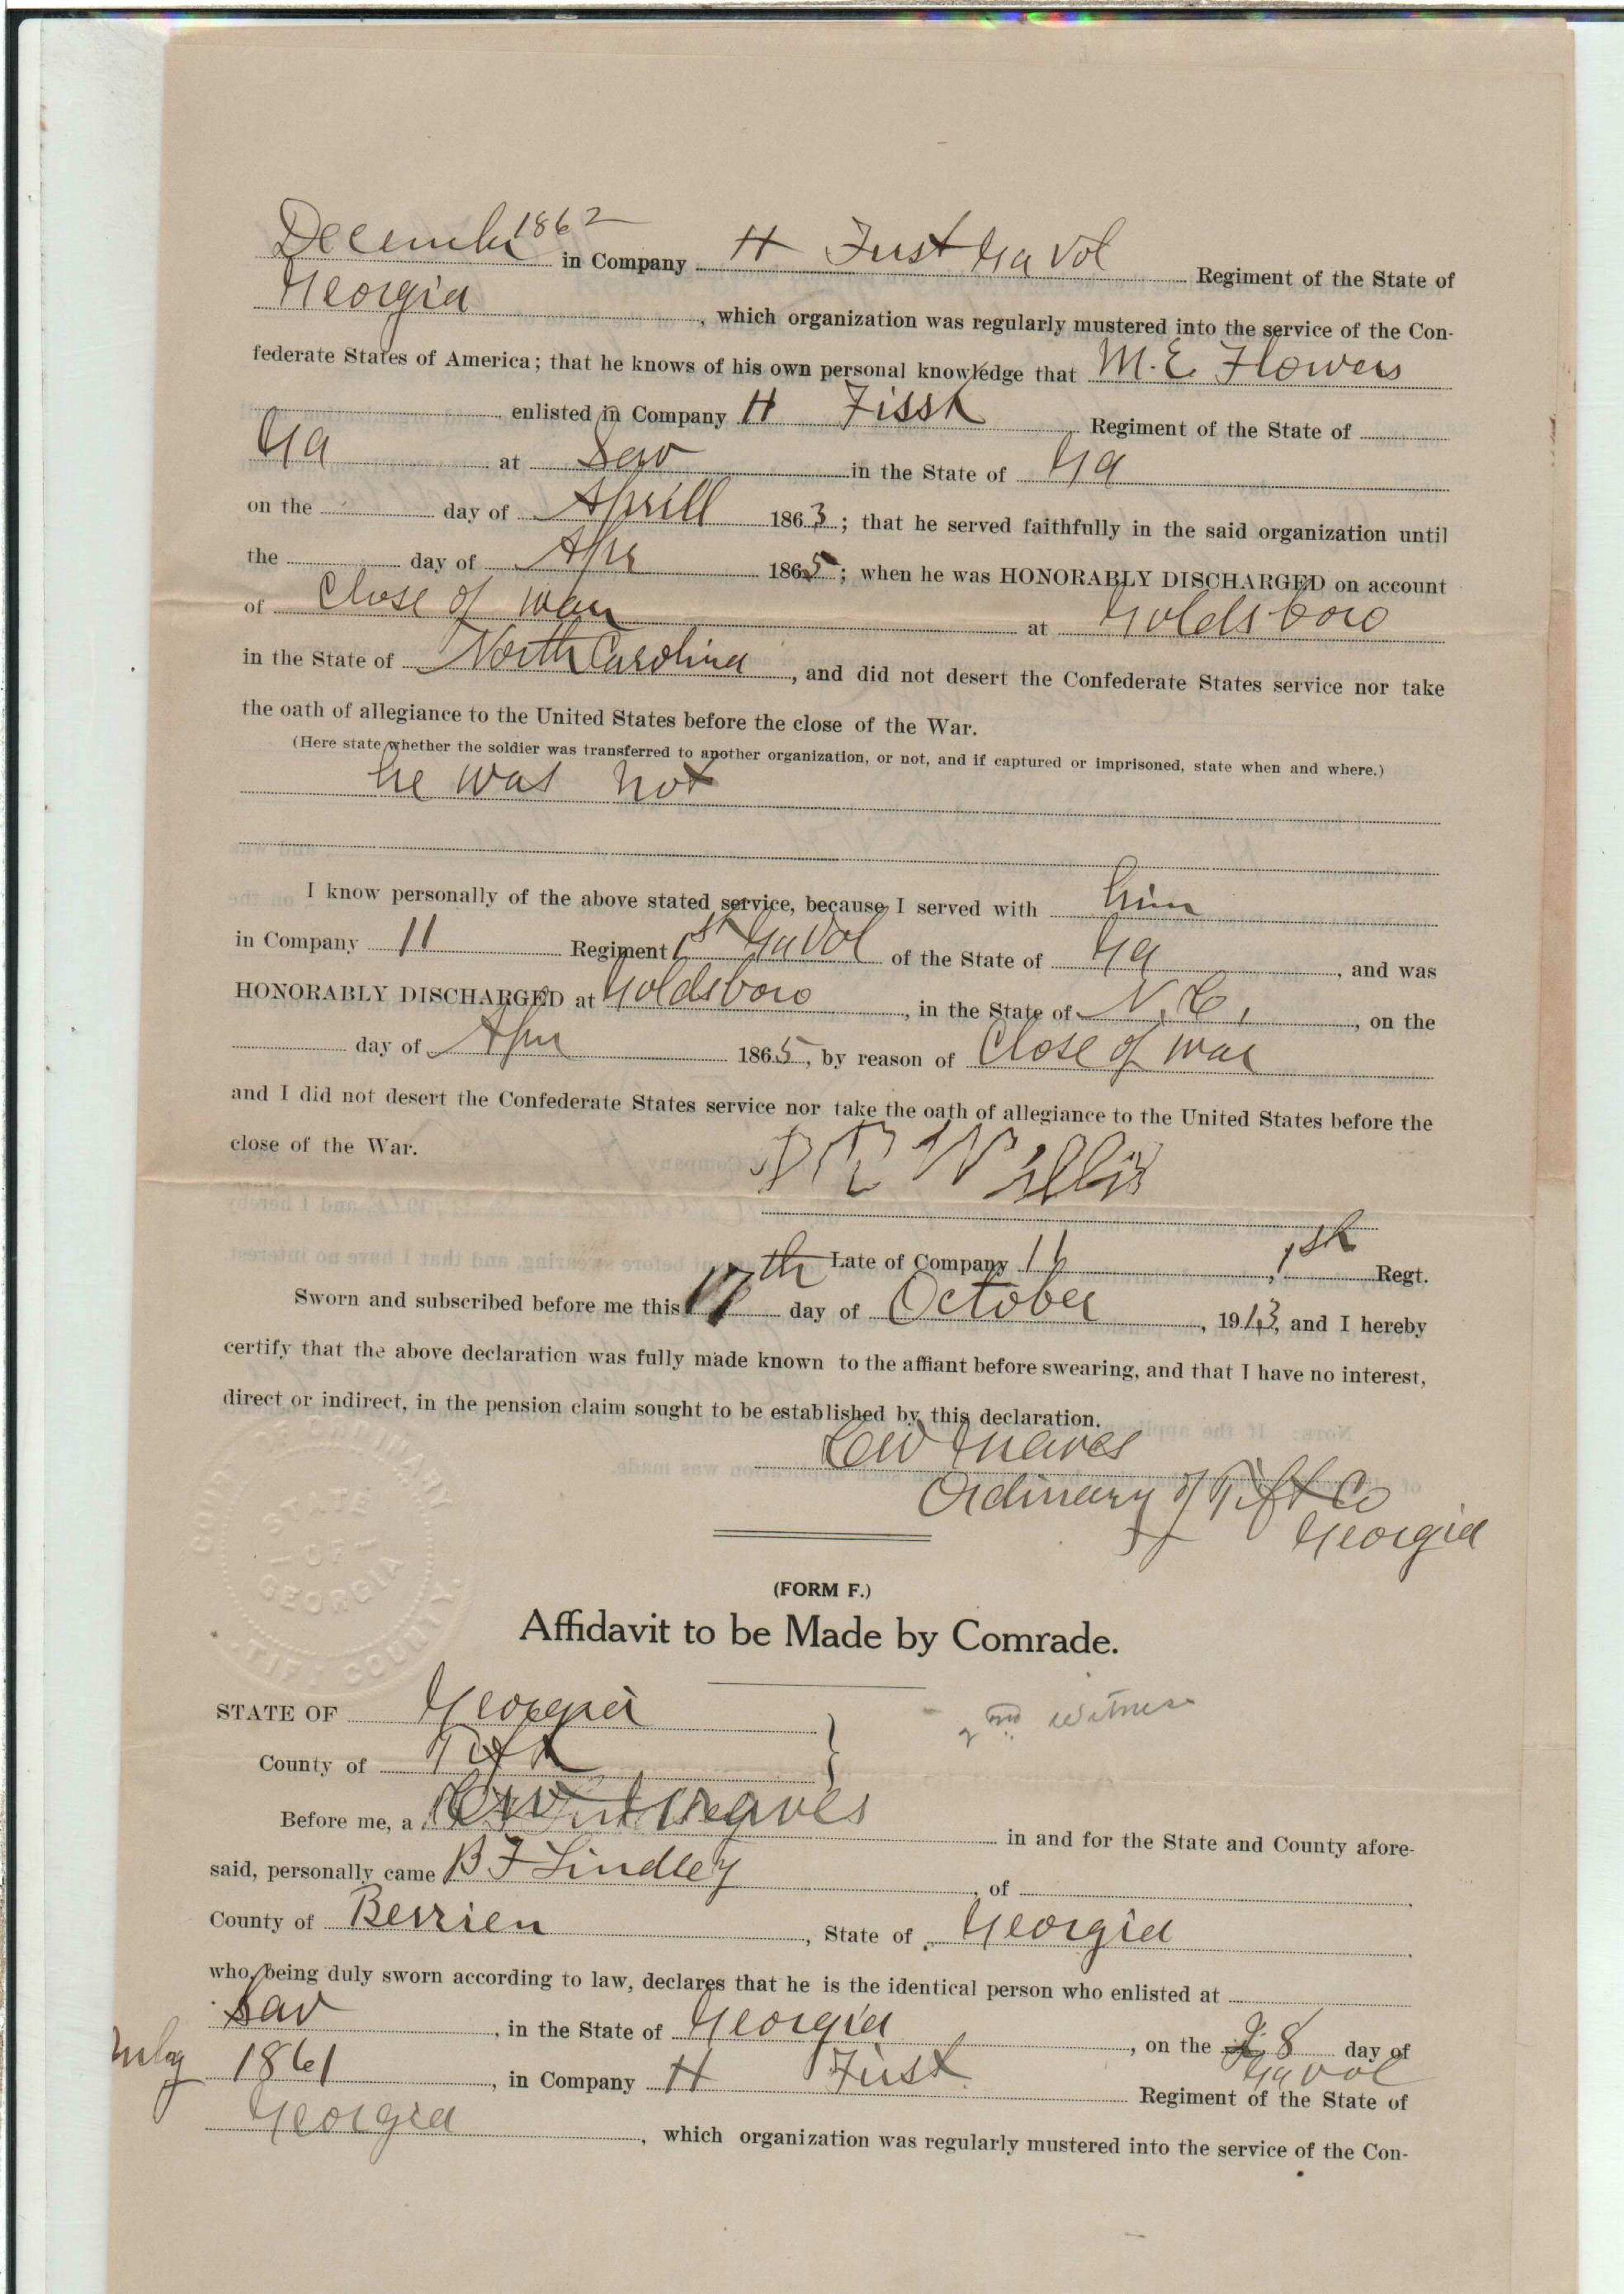 December 1862 in Company H First Ga Vol Regiment of the State of
Georgia, which organization was regularly mustered into the service of the Con-
federate States of America; that he knows of his own personal knowledge that M. E. Flowers
enlisted in Company H Fisst Regiment of the State of
Ga at Sav in the State of Ga
on the day of Aprill 1863; that he served faithfully in the said organization until
the day of Apr 1865; when he was HONORABLY DISCHARGED on account
of Close of war at Goldsboro
in the State of North Carolina, and did not desert the Confederate States service nor take
the oath of allegiance to the United States before the close of the War.
(Here state whether the soldier was transferred to another organization, or not, and if captured or imprisoned, state when and where.)
he was not
I know personally of the above stated service, because I served with him
in Company H Regiment 1st Ga Vol of the State of Ga, and was
HONORABLY DISCHARGED at Goldsboro, in the State of N. C., on the
day of Apr 1865, by reason of Close of war
and I did not desert the Confederate States service nor take the oath of allegiance to the United States before the
close of the War.
Willis
Late of Company H, 1st Regt.
Sworn and subscribed before me this 17th day of October, 1913, and I hereby
certify that the above declaration was fully made known to the affiant before swearing, and that I have no interest,
direct or indirect, in the pension claim sought to be established by this declaration.
Ordinary of Tift Co
Georgia
STATE OF GEORGIA
TIFT COUNTY
(FORM F.)
Affidavit to be Made by Comrade.
STATE OF Georgia
2nd Witness
County of Tift
Before me, a in and for the State and County afore-
said, personally came B F Lindley, of
County of Berrien, State of Georgia
who, being duly sworn according to law, declares that he is the identical person who enlisted at
Sav, in the State of Georgia, on the 8 day of
May 1861, in Company H First Ga Vol Regiment of the State of
Georgia, which organization was regularly mustered into the service of the Con-